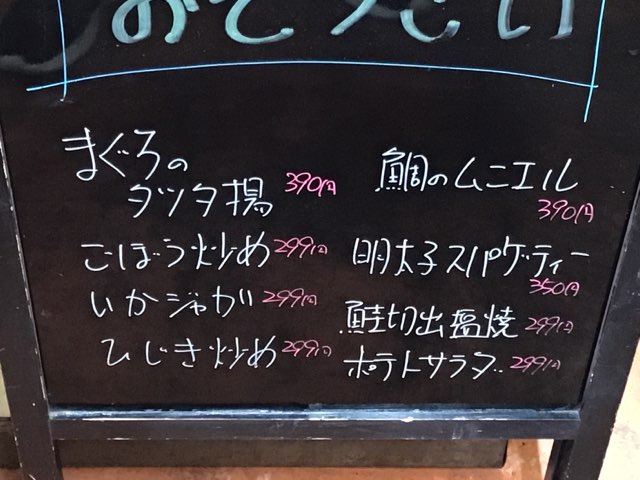 おそうざい
まぐろの
タツタ揚 390円
ごぼう炒め 299円
いかジャガ 299円
ひじき炒め 299円
鯛のムニエル
390円
明太子スパゲティー
350円
鮭切出塩焼 299円
ポテトサラダ 299円